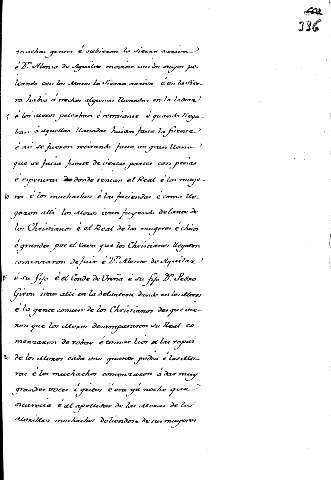 336
muchas ganas é subieron la sierra arriva
é Dn Alonso de Aguilar
leando con los Moros la Sierra arriva é en la Sier-
ra havia á trechos algunas llanadas en la ladera
é los Moros peleaban é
ban á aquellas llanadas huian facia la sierra
é asi se fueron retirando facia un gran llano
que se facia
é donde tenian el Real é las muge-
res é los muchachos é las faciendas é como lle-
garon alli los Moros ivan fuyendo delante de
los Christianos é el Real de las mugeres é chicos
é grandes por el que los Christianos llegaron
comenzaron de fuir é Dn Alonso de Aguilar
é su fijo é el Conde de Urueña é su fijo Dn Pedro
Giron ivan alli en la delantera dando en los Moros
é la gente comun de los Christianos des que vie-
ron que los Moros desampararon su Real co-
menzaron de robar é tomar lios de las ropas
de los Moros cada uno quanto podia é las Mo-
ras é los muchachos comenzaron á dar muy
grandes voces é gritos é era ya noche que
escurecia é el apellidar de los Moros de las
Morillas muchachos doliendose de sus mugeres